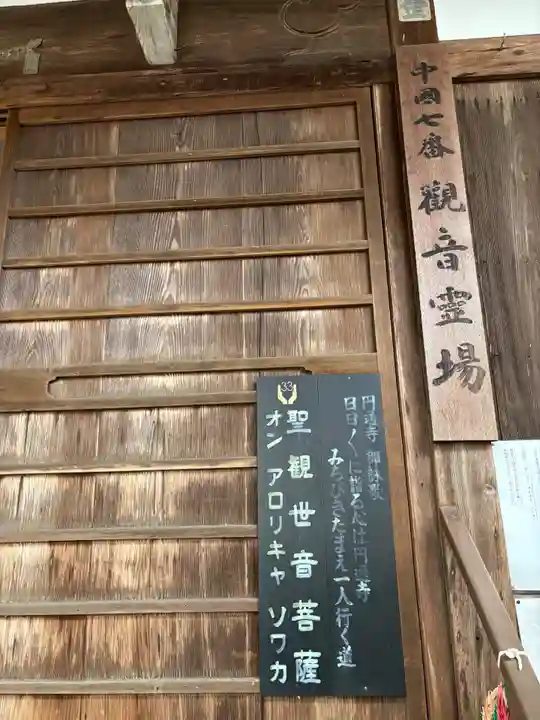 中國七番
觀音靈場
円通寺 御詠歌
日日くに詣る心は円通寺
みちびきたまえ一人行く道
33
聖観世音菩薩
オン アロリキャ ソワカ